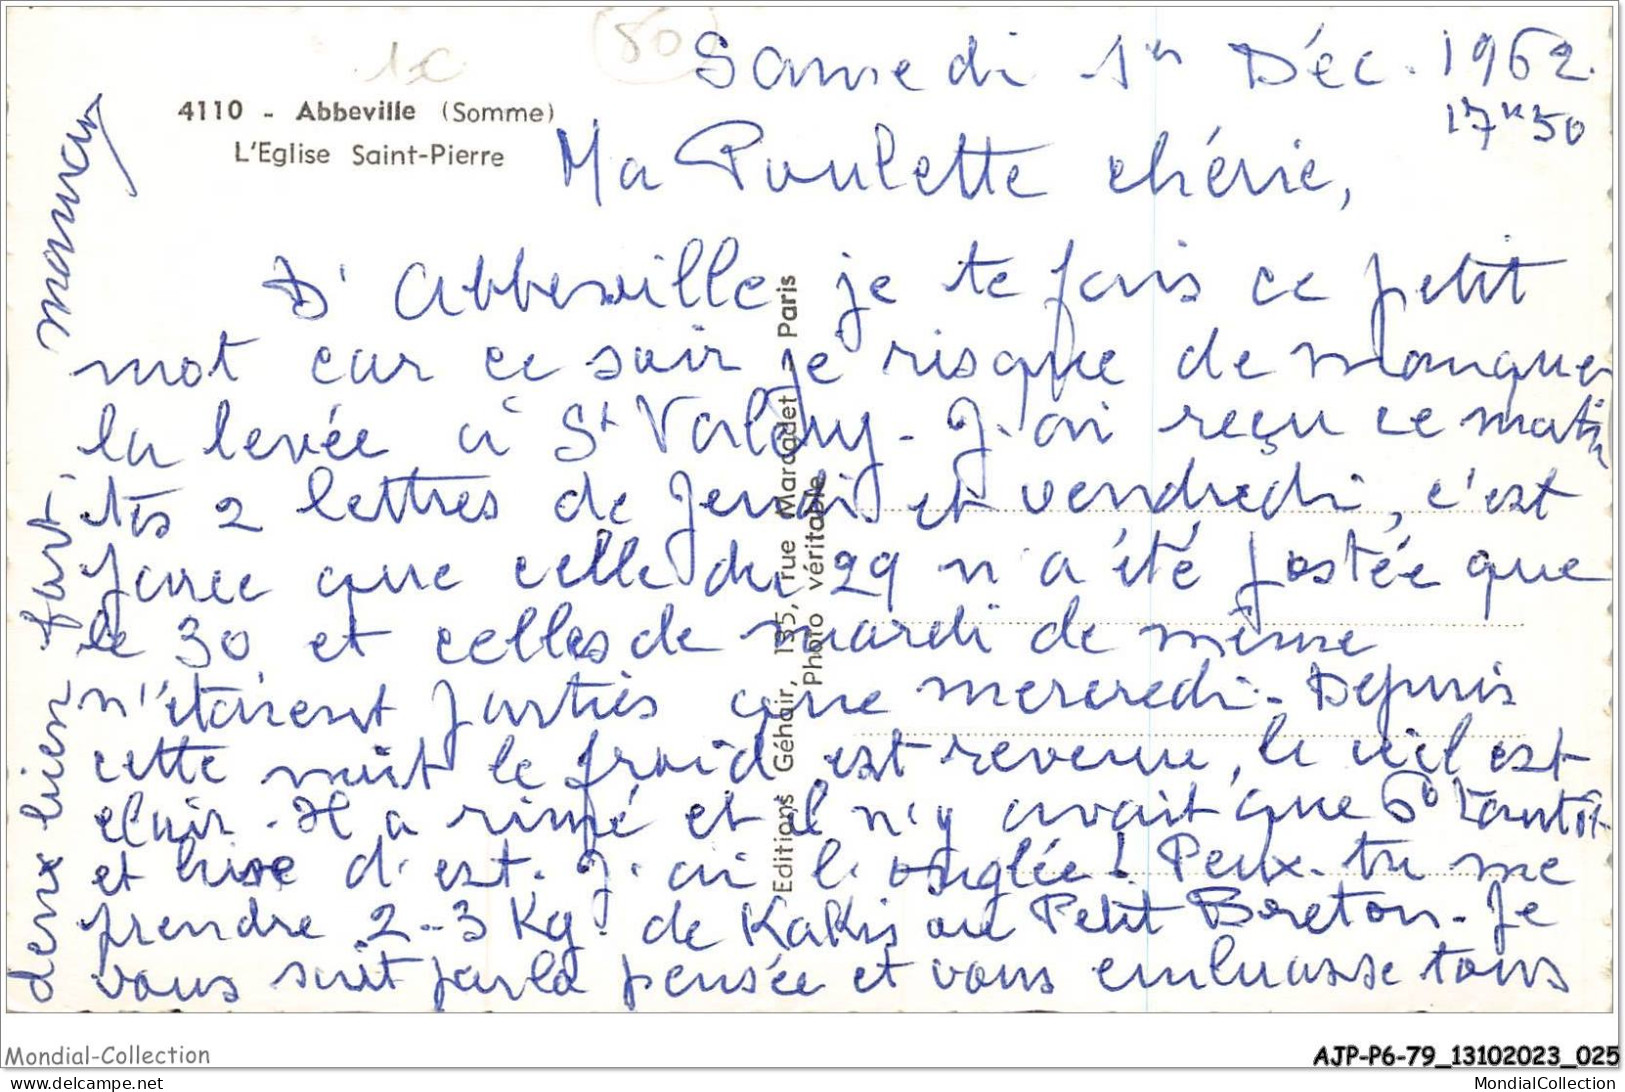 1c
80
Samedi 1er Déc. 1962.
17h50
4110 - Abbeville (Somme)
L'Eglise Saint-Pierre
Ma Poulette chérie,
D'Abbeville je te fais ce petit
mot car ce soir je risque de manquer
la levée à St Valéry - J'ai reçu ce matin
tes 2 lettres de jeudi et vendredi, c'est
parce que celle du 29 n'a été postée que
le 30 et celles de mardi de même
n'étaient parties que mercredi - Depuis
cette nuit le froid est revenu, le ciel est
clair. Il a rimé et il n'y avait que 6° tantôt
et bise d'est. J'ai l'onglée! Peux-tu me
prendre 2-3 Kg. de Kakis au Petit Breton - Je
vous suit par la pensée et vous embrasse tous
deux bien fort.
maman
Editions Géhair, 135, rue Marcadet - Paris
Photo véritable
Mondial-Collection
AJP-P6-79_13102023_025
www.delcampe.net
MondialCollection